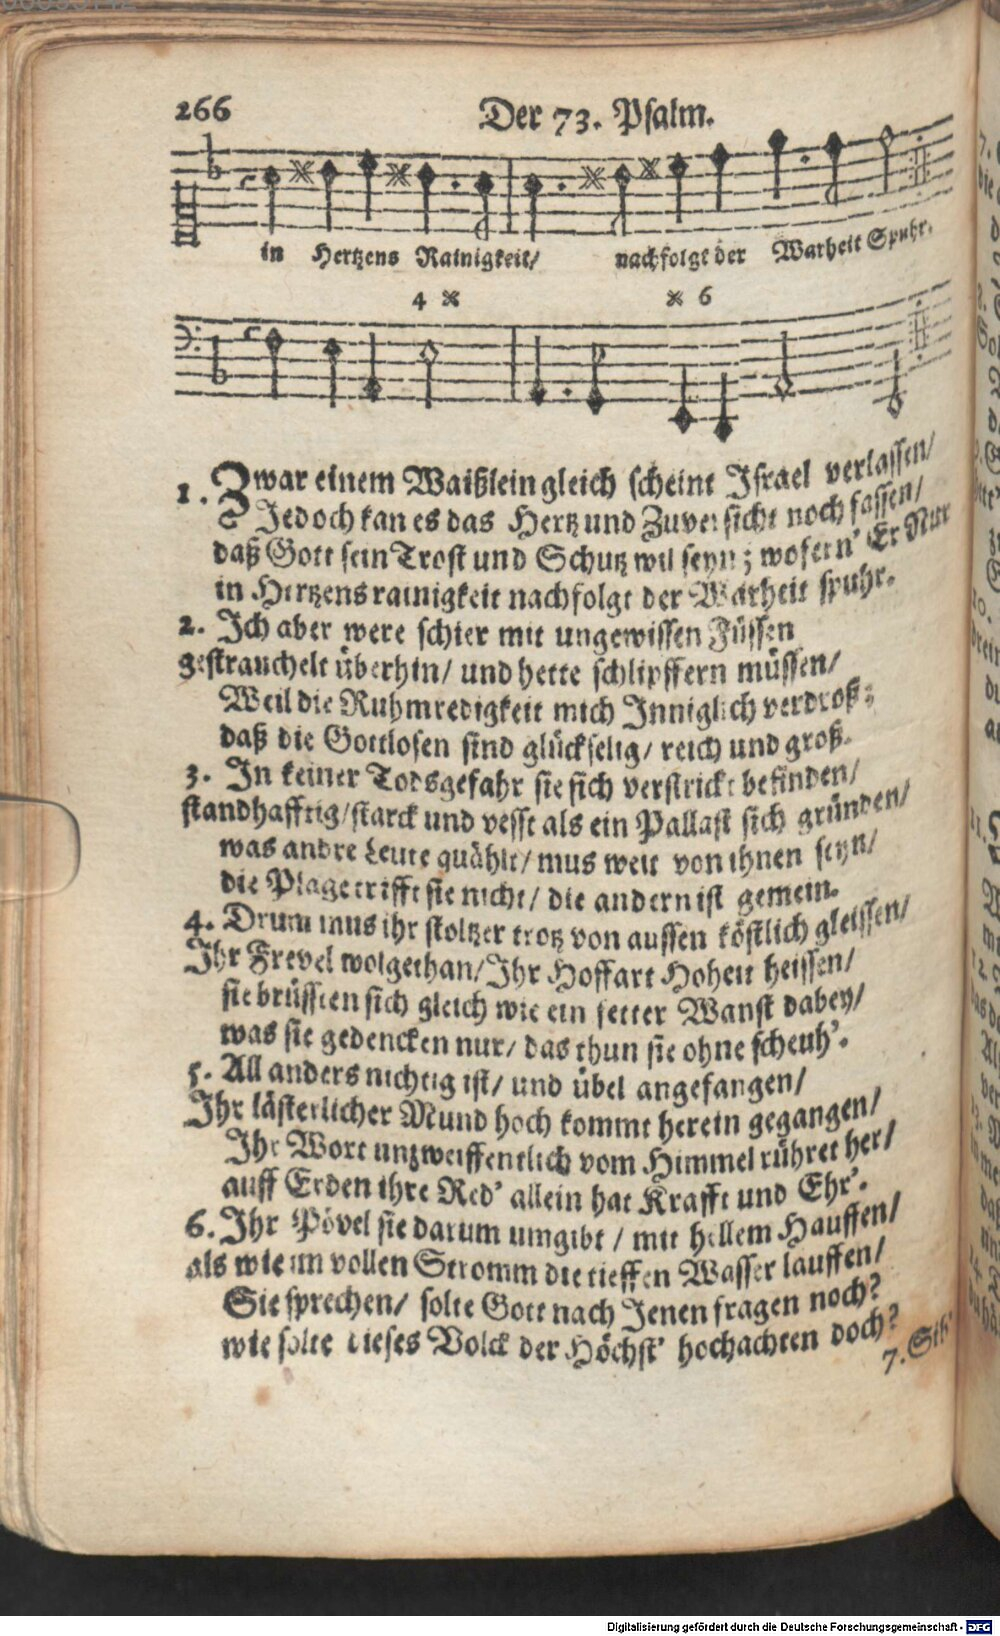 266
Der 73. Psalm.
in Hertzens Rainigkeit/ nachfolgt der Warheit Spuhr.
4 x x 6
1. Zwar einem Waißlein gleich scheint Israel verlassen/
Jedoch kan es das Hertz und Zuversicht noch fassen/
daß Gott sein Trost und Schutz wil seyn; wofern' Er Nur
in Hertzens rainigkeit nachfolgt der Warheit spuhr.
2. Ich aber were schier mit ungewissen Füssen
gestrauchelt überhin/ und hette schlipffern müssen/
Weil die Ruhmredigkeit mich Inniglich verdroß;
daß die Gottlosen sind glückselig/ reich und groß.
3. In keiner Todsgefahr sie sich verstrickt befinden/
standhafftig/starck und vesst als ein Pallast sich gründen/
was andre Leute quählt/ mus weit von ihnen seyn/
die Plage trifft sie nicht/ die andern ist gemein.
4. Drum mus ihr stoltzer trotz von aussen köstlich gleissen/
Ihr Frevel wolgethan/Ihr Hoffart Hoheit heissen/
sie brüssten sich gleich wie ein fetter Wanst dabey/
was sie gedencken nur/ das thun sie ohne scheuh'.
5. All anders nichtig ist/ und übel angefangen/
Ihr lästerlicher Mund hoch kommt herein gegangen/
Ihr Wort unzweiffentlich vom Himmel rühret her/
auff Erden ihre Red' allein hat Krafft und Ehr'.
6. Ihr Pövel sie darum umgibt / mit hellem Hauffen/
als wie im vollen Stromm die tieffen Wasser lauffen/
Sie sprechen/ solte Gott nach Jenen fragen noch?
wie solte dieses Volck der Höchst' hochachten doch?
7. Sih'
Digitalisierung gefördert durch die Deutsche Forschungsgemeinschaft - DFG